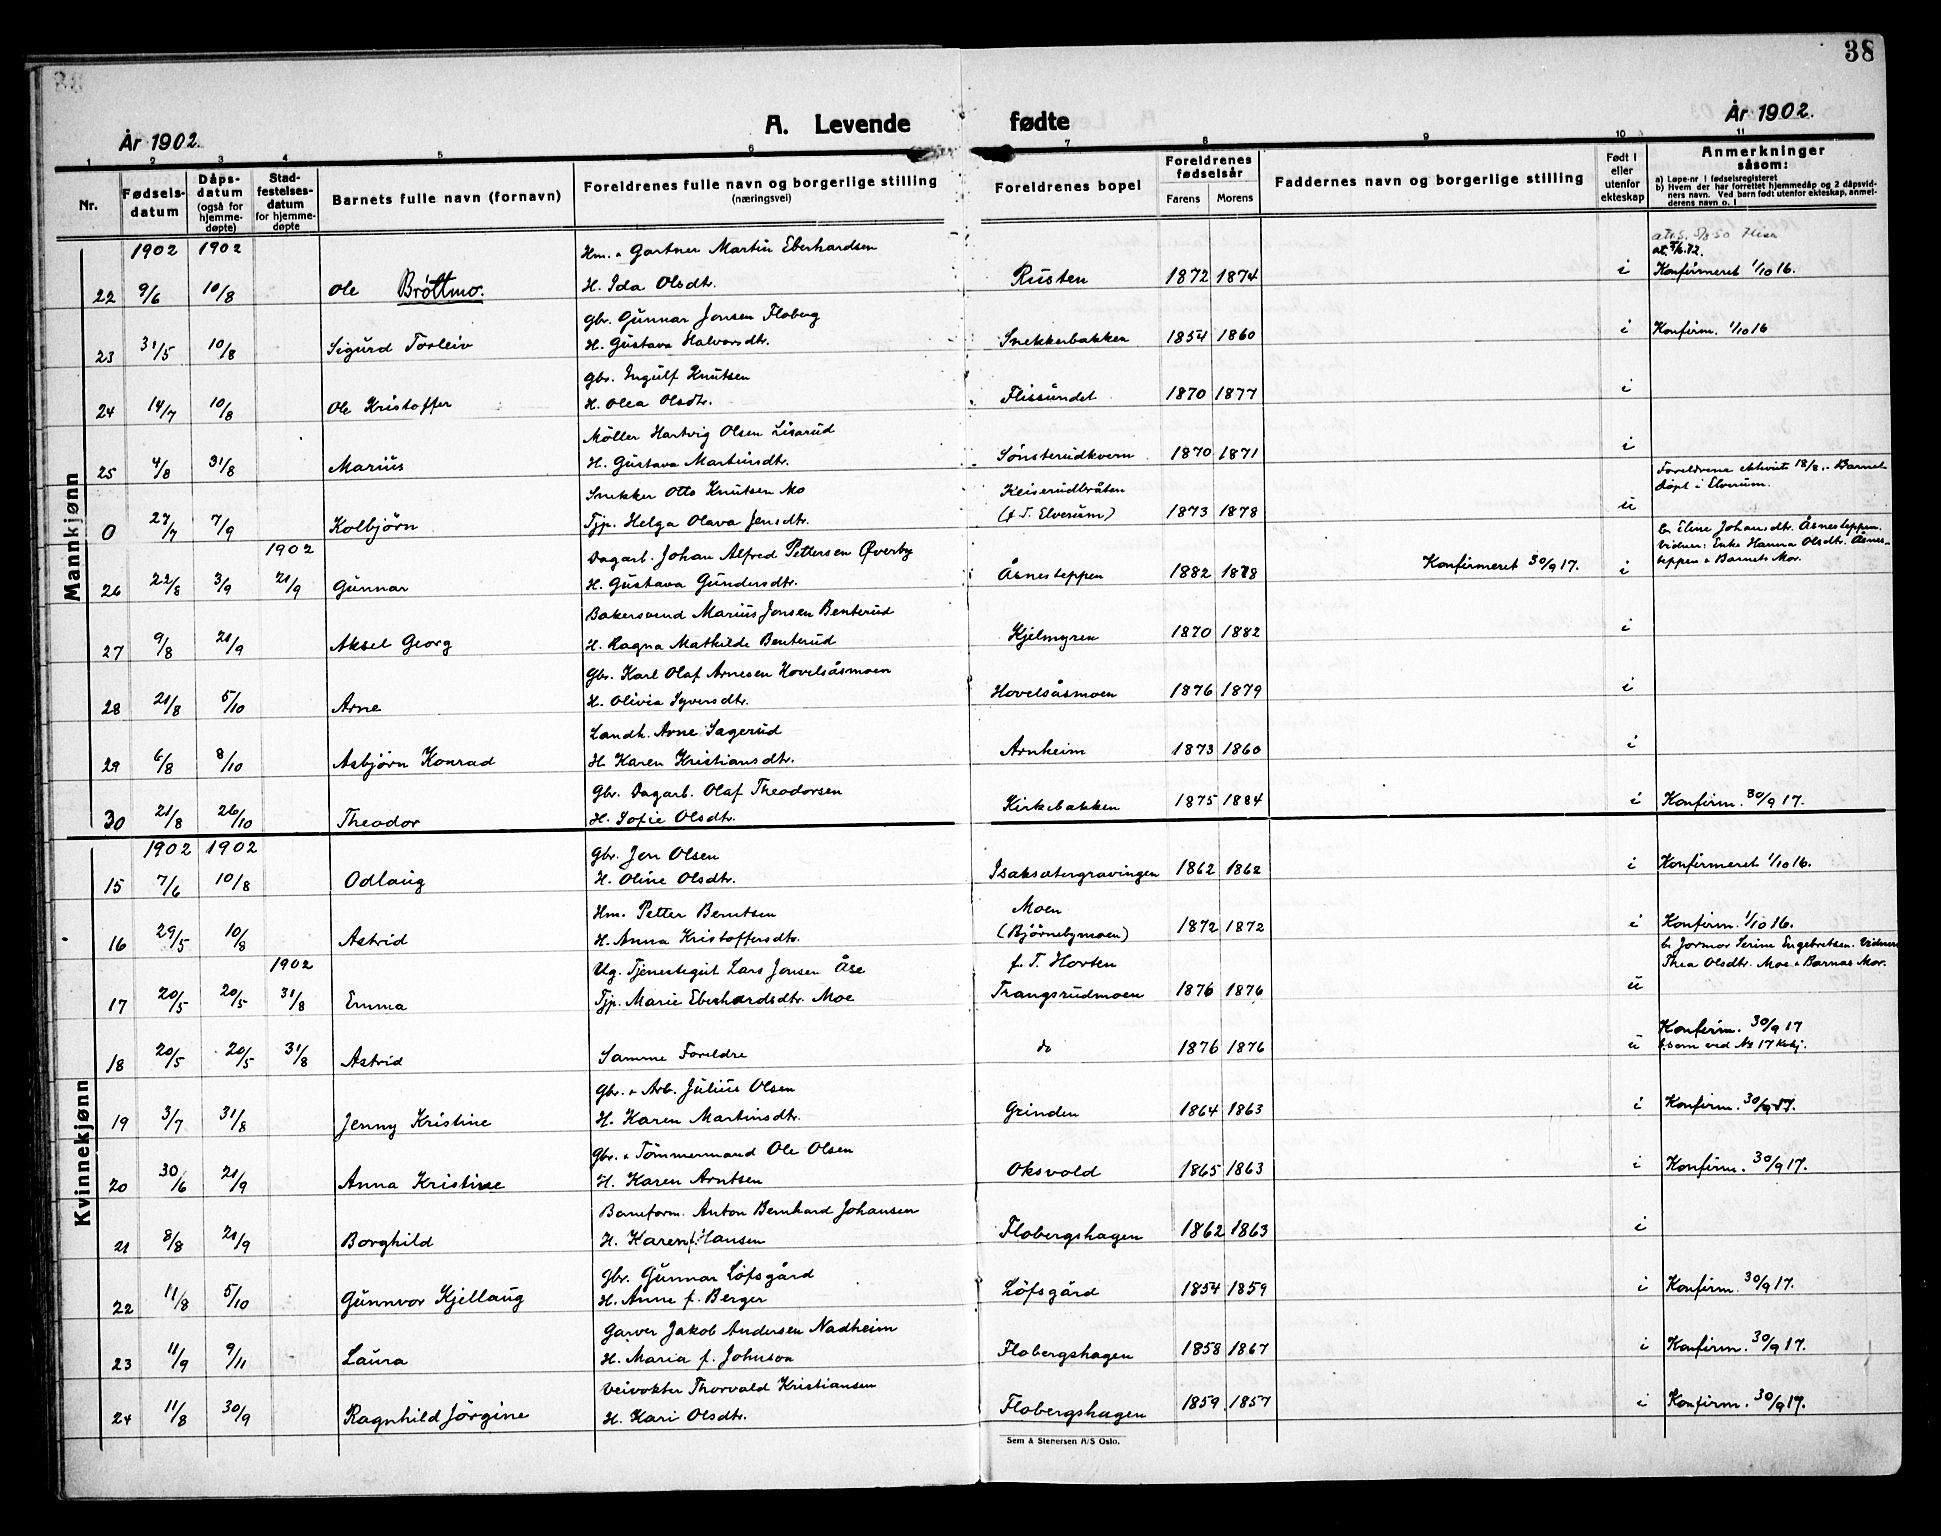 38
År 1902.
A. Levende
fødte
År 1902.
1 2 3 4 5 6 7 8 9 10 11
Nr.
Fødselsdatum
Dåpsdatum (også for hjemmedøpte)
Stadfestelsesdatum for hjemmedøpte
Barnets fulle navn (fornavn)
Foreldrenes fulle navn og borgerlige stilling (næringsvei)
Foreldrenes bopel
Foreldrenes fødselsår
Farens Morens
Faddernes navn og borgerlige stilling
Født i eller utenfor ekteskap
Anmerkninger såsom:
a) Løpe-nr i fødselsregisteret
b) Hvem der har forrettet hjemmedåp og 2 dåpsvidners navn. Ved barn født utenfor ekteskap, anmelderens navn o. l
Mannkjønn
1902 1902 Hm. + Gartner Martin Eberhardsen
22 9/6 10/8 Ole Brøttmo. H. Ida Olsdtr. Rusten 1872 1874 i Konfirmeret 1/10 16.
Gbr. Gunnar Jonsen Floberg
23 31/5 10/8 Sigurd Torleiv H. Gustava Halvorsdtr. Snekkerbakken 1854 1860 i Konfirm. 1/10 16
Gbr. Ingulf Knutsen
24 14/7 10/8 Ole Kristoffer H. Olea Olsdtr. Flissundet 1870 1877 i
Møller Hartvig Olsen Lisarud
25 4/8 31/8 Marius H. Gustava Martinsdtr. Sønsterudkvern 1870 1871 i
Foreldrene ektevit 18/8. - Barnet døpt i Elverum.
Snekker Otto Knutsen Mo Keiserudbråten
0 27/7 7/9 Kolbjørn Tjp. Helga Olava Jensdtr. (f. T. Elverum) 1873 1878 u
1902 Dagarb. Johan Alfred Pettersen Øverby
b. Eline Johansdtr. Åsnesteppen. Vidner: Enke Hanna Olsdtr. Åsnesteppen + Barnets Mor.
26 22/8 3/9 21/9 Gunnar H. Gustava Gundersdtr. Åsnesteppen 1882 1878 Konfirmeret 30/9 17. i
Bakersvend Marius Jonsen Benterud
27 9/8 21/9 Aksel Georg H. Ragna Mathilde Benterud Kjelmyren 1870 1882 i
Gbr. Karl Olaf Arnesen Hovelsåsmoen
28 21/8 5/10 Arne H. Olivia Syversdtr. Hovelsåsmoen 1876 1879 i
Landh. Arne Sagerud
29 6/8 8/10 Asbjørn Konrad H. Karen Kristiansdtr. Arnheim 1873 1860 i
Gbr. Dagarb. Olaf Theodorsen
30 21/8 26/10 Theodor H. Sofie Olsdtr. Kirkebakken 1875 1884 i Konfirm. 30/9 17.
Kvinnekjønn
1902 1902 Gbr. Jon Olsen
15 7/6 10/8 Odlaug H. Oline Olsdtr. Isaksætergravingen 1862 1862 i Konfirmeret 1/10 16.
Hm. Petter Berntsen Moen
16 29/5 10/8 Astrid H. Anna Kristoffersdtr. (Bjørnebymoen) 1872 1872 i Konfirm. 1/10 16.
1902 Ug. Tjenestegut Lars Jonsen Åse f. T. Horten
b. Jormor Serine Engebretsen. Vidner Thea Olsdtr. Moe + Barnas Mor.
17 20/5 20/5 31/8 Emma Tjp. Marie Eberhardsdtr. Moe Trangsrudmoen 1876 1876 u
18 20/5 20/5 31/8 Astrid Samme Foreldre do 1876 1876 u Konfirm. 30/9 17
b. som ved No 17 Kvkj.
Gbr. + Arb. Julius Olsen
19 3/7 31/8 Jenny Kristine H. Karen Martinsdtr. Grinden 1864 1863 i Konfirm. 30/9 17.
Gbr. + Tømmermand Ole Olsen
20 30/6 21/9 Anna Kristine H. Karen Arntsen Oksvold 1865 1863 i Konfirm. 30/9 17.
Baneform. Anton Bernhard Johansen
21 8/8 21/9 Borghild H. Karen f. Hansen Flobergshagen 1862 1863 i
Gbr. Gunnar Løfsgård
22 11/8 5/10 Gunnvor Kjellaug H. Anne f. Berger Løfsgård 1854 1859 i Konfirm. 30/9 17.
Garver Jakob Andersen Nadheim
23 11/9 9/11 Laura H. Maria f. Johnson Flobergshagen 1858 1867 i Konfirm. 30/9 17.
Veivokter Thorvald Kristiansen
24 11/8 30/9 Ragnhild Jørgine H. Kari Olsdtr. Flobergshagen 1859 1857 i Konfirm. 30/9 17.
Sem & Stenersen A/S Oslo.